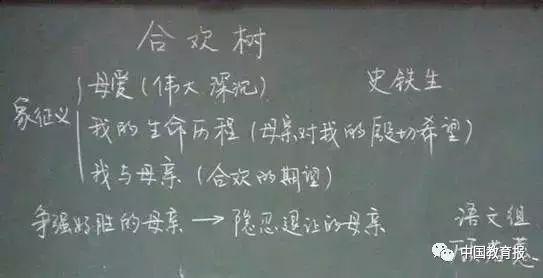 合欢树
母爱(伟大 深沉)
史铁生
象征义
我的生命历程(母亲对我的殷切希望)
我与母亲(合欢的期望)
争强好胜的母亲→隐忍退让的母亲
语文组
中国教育报